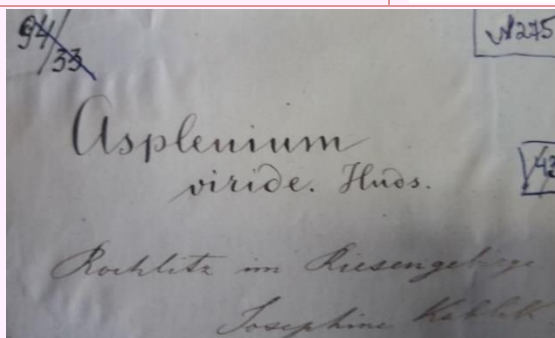 94/33
N275
Asplenium
viride. Huds.
43
Rochlitz im Riesengebirge
Josephine Kablik